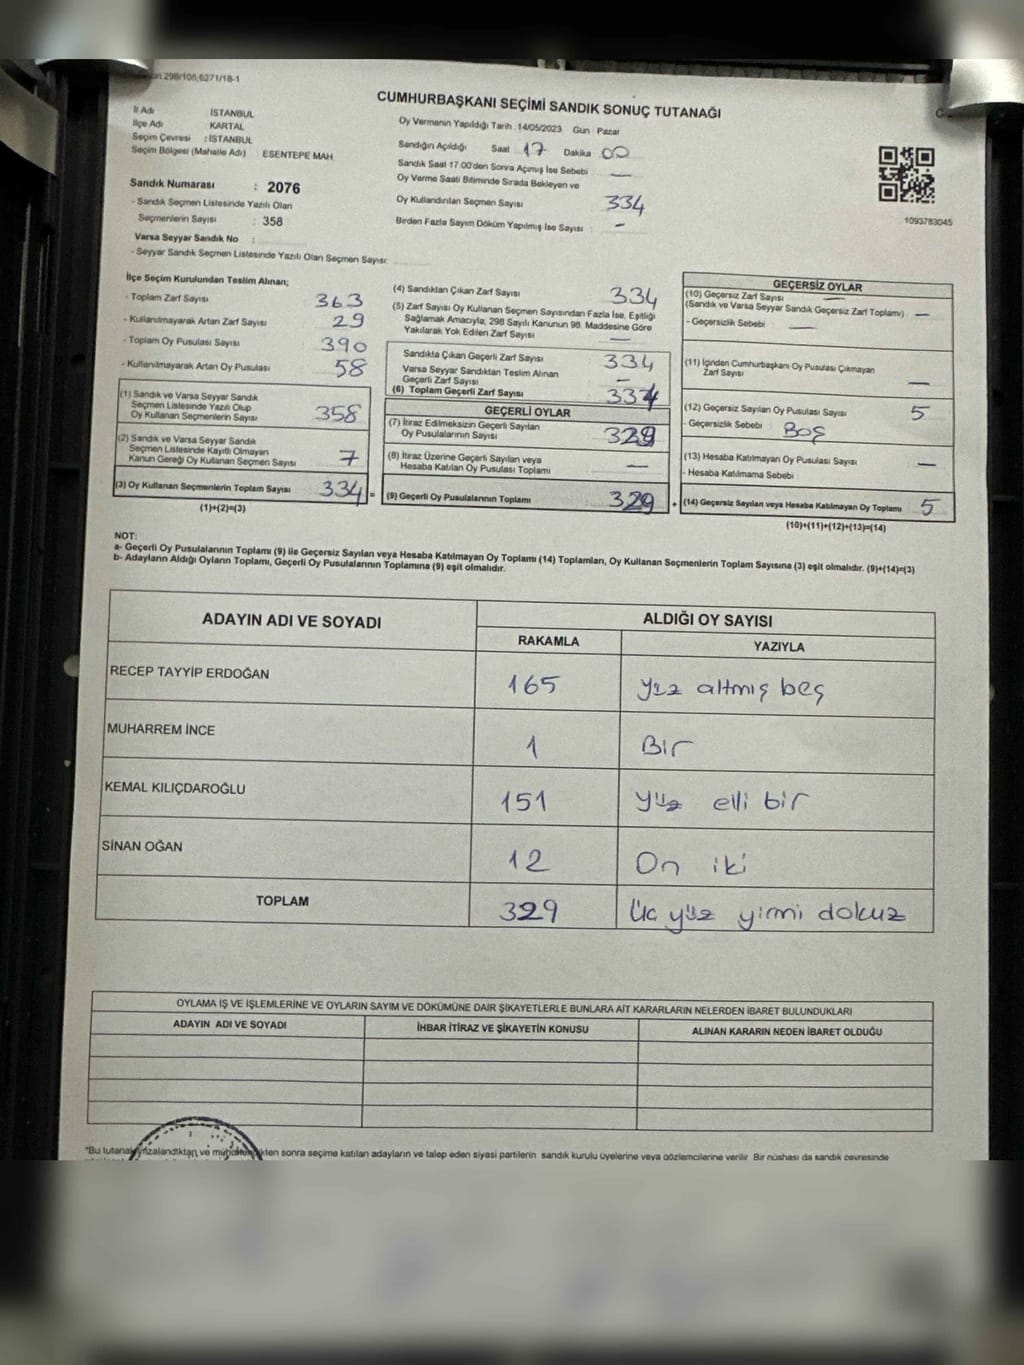 298/106,6271/18-1
CUMHURBAŞKANI SEÇİMİ SANDIK SONUÇ TUTANAĞI
İl Adı : İSTANBUL
İlçe Adı : KARTAL
Seçim Çevresi : İSTANBUL
Seçim Bölgesi (Mahalle Adı) : ESENTEPE MAH.
Sandık Numarası : 2076
- Sandık Seçmen Listesinde Yazılı Olan
Seçmenlerin Sayısı : 358
Varsa Seyyar Sandık No :
- Seyyar Sandık Seçmen Listesinde Yazılı Olan Seçmen Sayısı:
Oy Vermenin Yapıldığı Tarih :14/05/2023 Gün Pazar
Sandığın Açıldığı Saat 17 Dakika 00
Sandık Saat 17.00'den Sonra Açımış İse Sebebi —
Oy Verme Saati Bitiminde Sırada Bekleyen ve
Oy Kullandırılan Seçmen Sayısı 334
Birden Fazla Sayım Döküm Yapılmış İse Sayısı : -
1093783045
İlçe Seçim Kurulundan Teslim Alınan;
- Toplam Zarf Sayısı 363
- Kullanılmayarak Artan Zarf Sayısı 29
- Toplam Oy Pusulası Sayısı 390
- Kullanılmayarak Artan Oy Pusulası 58
(1) Sandık ve Varsa Seyyar Sandık
Seçmen Listesinde Yazılı Olup
Oy Kullanan Seçmenlerin Sayısı 358
(2) Sandık ve Varsa Seyyar Sandık
Seçmen Listesinde Kayıtlı Olmayan
Kanun Gereği Oy Kullanan Seçmen Sayısı 7
(3) Oy Kullanan Seçmenlerin Toplam Sayısı 334 =
(1)+(2)=(3)
(4) Sandıktan Çıkan Zarf Sayısı 334
(5) Zarf Sayısı Oy Kullanan Seçmen Sayısından Fazla İse, Eşitliği
Sağlamak Amacıyla; 298 Sayılı Kanunun 98. Maddesine Göre
Yakılarak Yok Edilen Zarf Sayısı —
Sandıkta Çıkan Geçerli Zarf Sayısı 334
Varsa Seyyar Sandıktan Teslim Alınan
Geçerli Zarf Sayısı -
(6) Toplam Geçerli Zarf Sayısı 334
GEÇERLİ OYLAR
(7) İtiraz Edilmeksizin Geçerli Sayılan
Oy Pusulalarının Sayısı 329
(8) İtiraz Üzerine Geçerli Sayılan veya
Hesaba Katılan Oy Pusulası Toplamı —
(9) Geçerli Oy Pusulalarının Toplamı 329 +
GEÇERSİZ OYLAR
(10) Geçersiz Zarf Sayısı —
(Sandık ve Varsa Seyyar Sandık Geçersiz Zarf Toplamı) —
- Geçersizlik Sebebi : —
(11) İçinden Cumhurbaşkanı Oy Pusulası Çıkmayan
Zarf Sayısı —
(12) Geçersiz Sayılan Oy Pusulası Sayısı 5
- Geçersizlik Sebebi : Boş
(13) Hesaba Katılmayan Oy Pusulası Sayısı —
- Hesaba Katılmama Sebebi
(14) Geçersiz Sayılan veya Hesaba Katılmayan Oy Toplamı 5
(10)+(11)+(12)+(13)=(14)
NOT:
a- Geçerli Oy Pusulalarının Toplamı (9) ile Geçersiz Sayılan veya Hesaba Katılmayan Oy Toplamı (14) Toplamları, Oy Kullanan Seçmenlerin Toplam Sayısına (3) eşit olmalıdır. (9)+(14)=(3)
b- Adayların Aldığı Oyların Toplamı, Geçerli Oy Pusulalarının Toplamına (9) eşit olmalıdır.
ADAYIN ADI VE SOYADI ALDIĞI OY SAYISI
RAKAMLA YAZIYLA
RECEP TAYYİP ERDOĞAN 165 yüz altmış beş
MUHARREM İNCE 1 Bir
KEMAL KILIÇDAROĞLU 151 yüz elli bir
SİNAN OĞAN 12 On iki
TOPLAM 329 Üç yüz yirmi dokuz
OYLAMA İŞ VE İŞLEMLERİNE VE OYLARIN SAYIM VE DÖKÜMÜNE DAİR ŞİKAYETLERLE BUNLARA AİT KARARLARIN NELERDEN İBARET BULUNDUKLARI
ADAYIN ADI VE SOYADI İHBAR İTİRAZ VE ŞİKAYETİN KONUSU ALINAN KARARIN NEDEN İBARET OLDUĞU
*Bu tutanak imzalandıktan ve mühürlendikten sonra seçime katılan adayların ve talep eden siyasi partilerin sandık kurulu üyelerine veya gözlemcilerine verilir. Bir nüshası da sandık çevresinde